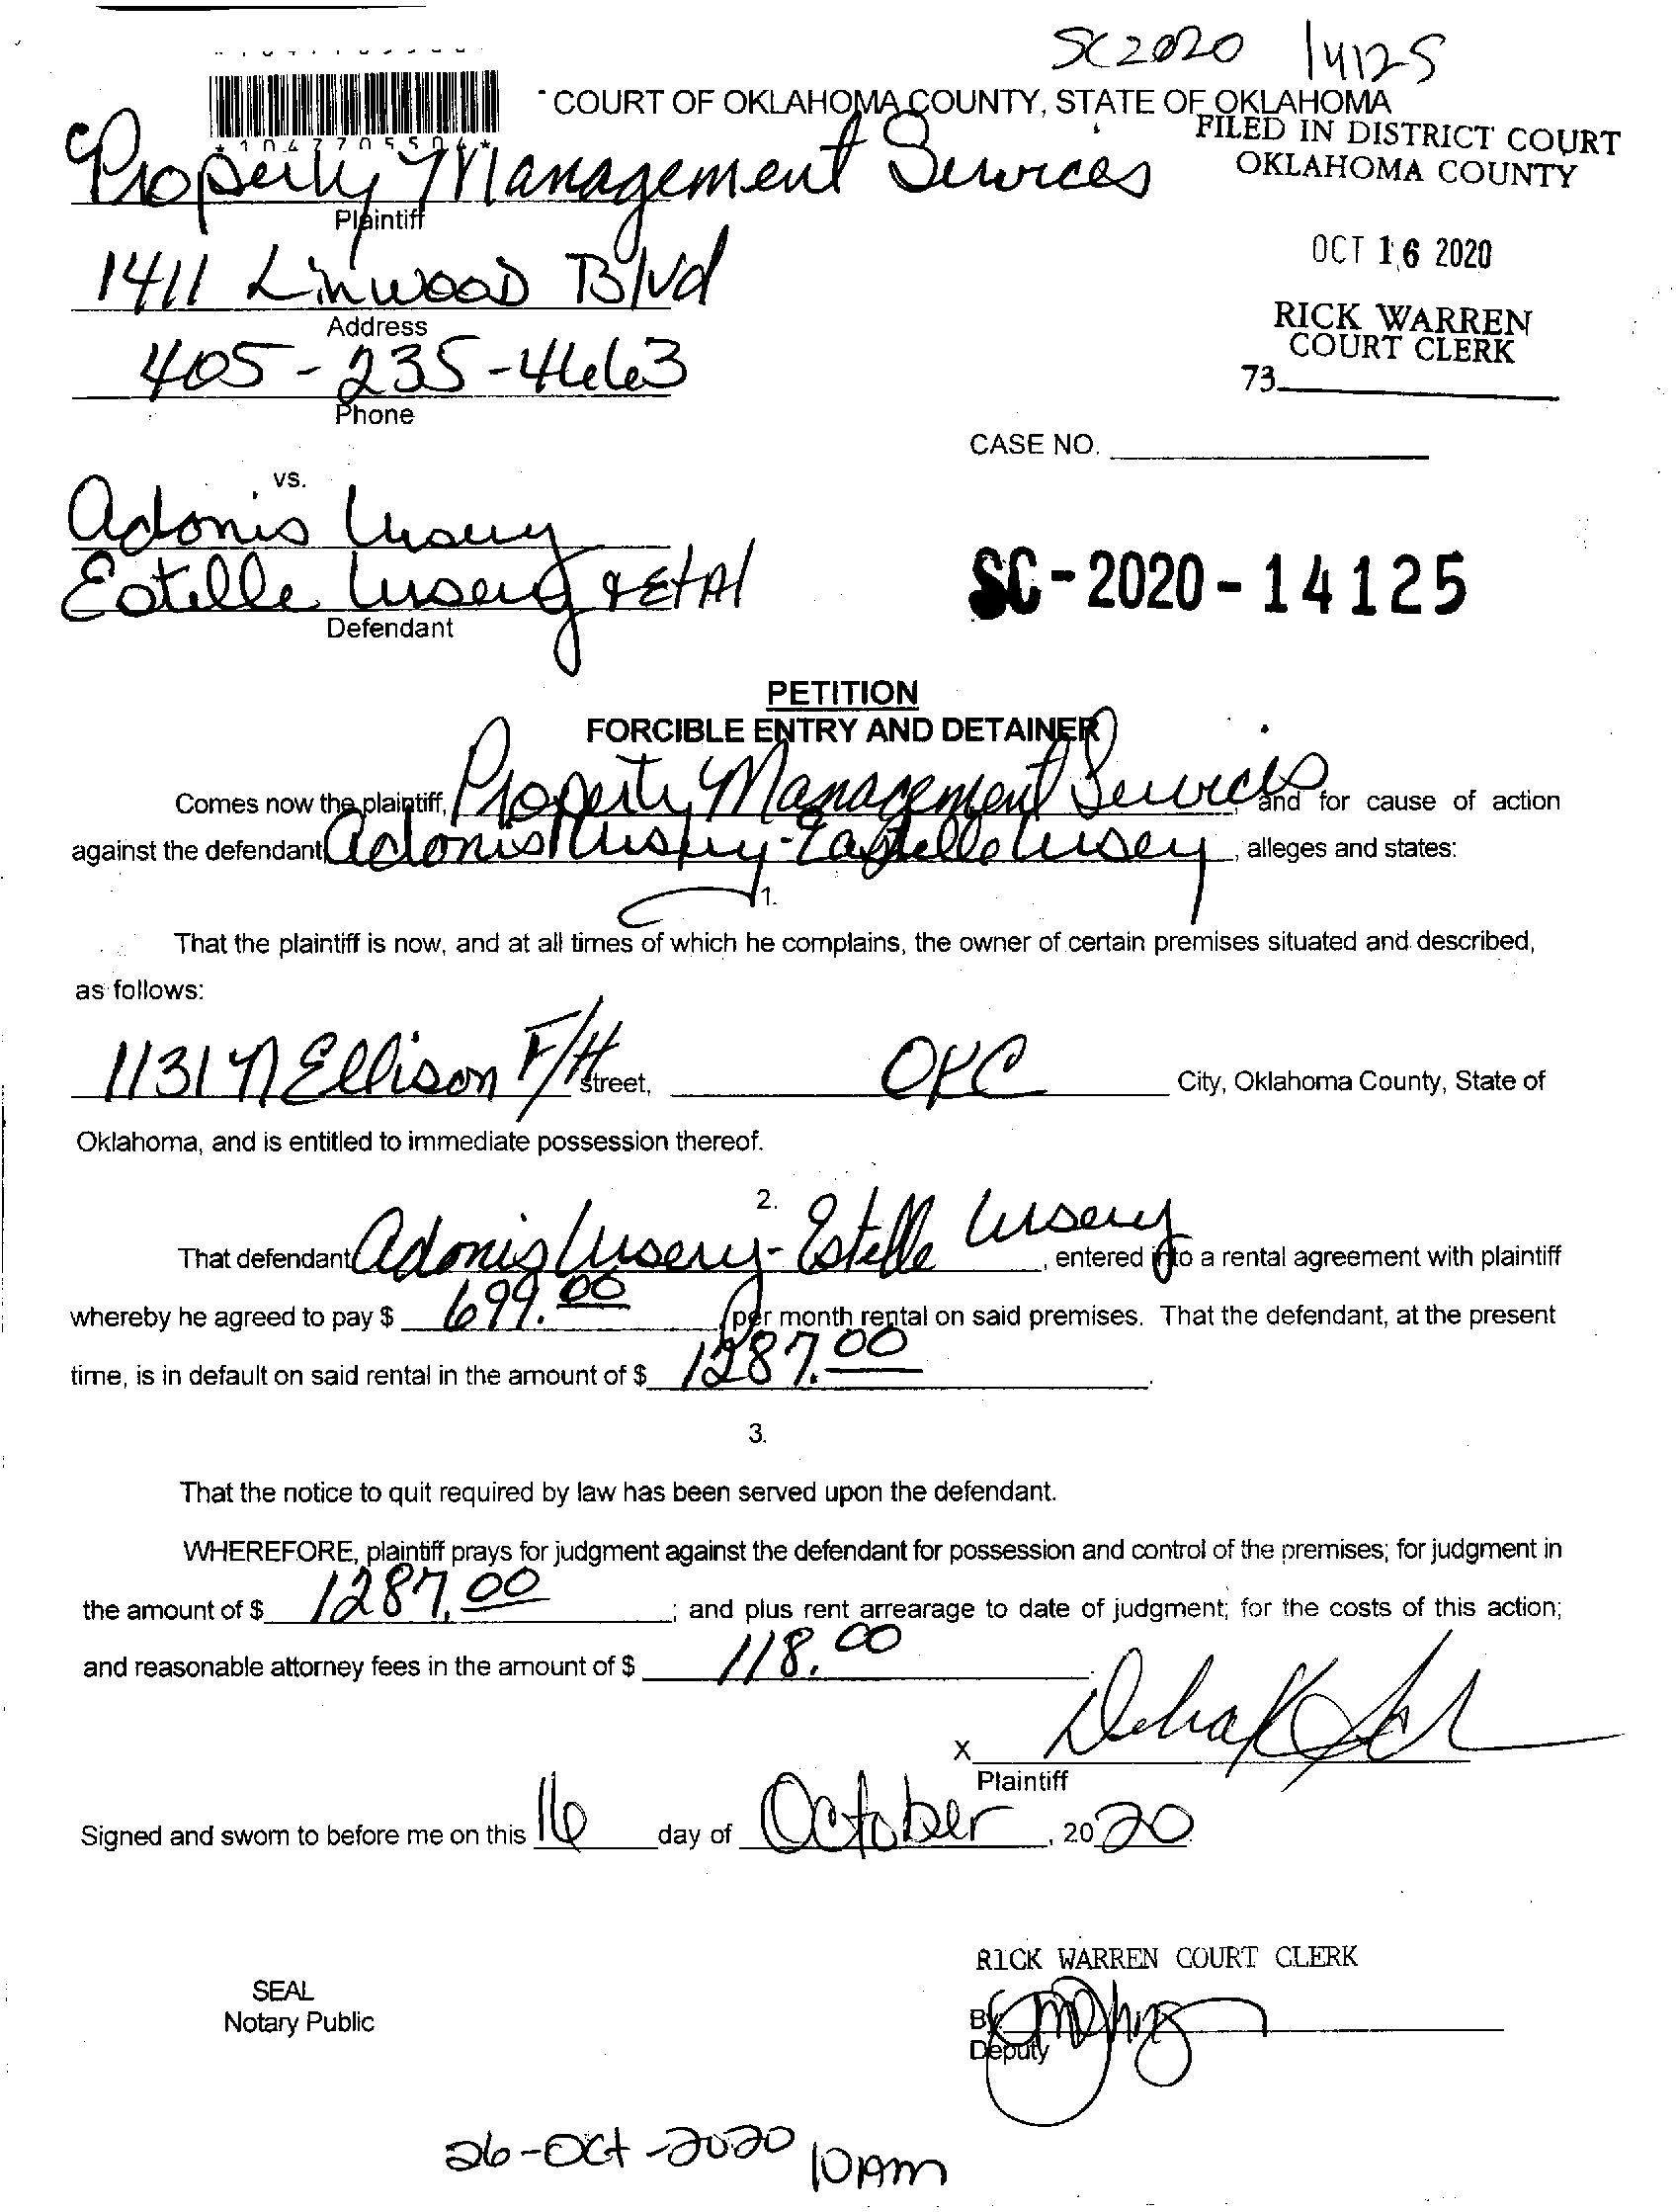 SC2020 14125
COURT OF OKLAHOMA COUNTY, STATE OF OKLAHOMA
FILED IN DISTRICT COURT
OKLAHOMA COUNTY
Property Management Services
Plaintiff
OCT 16 2020
1411 Linwood Blvd
Address
RICK WARREN
COURT CLERK
405-235-4663
Phone
73
CASE NO.
vs.
Adonis Usery
Estelle Usery & EtAl
Defendant
SC-2020-14125
PETITION
FORCIBLE ENTRY AND DETAINER
Comes now the plaintiff, Property Management Services and for cause of action
against the defendant Adonis Usery - Eastelle Usery, alleges and states:
1.
That the plaintiff is now, and at all times of which he complains, the owner of certain premises situated and described,
as follows:
1131 N Ellison F/H Street, OKC City, Oklahoma County, State of
Oklahoma, and is entitled to immediate possession thereof.
2.
That defendant Adonis Usery - Estelle Usery, entered into a rental agreement with plaintiff
whereby he agreed to pay $ 699.00 per month rental on said premises. That the defendant, at the present
time, is in default on said rental in the amount of $ 1287.00.
3.
That the notice to quit required by law has been served upon the defendant.
WHEREFORE, plaintiff prays for judgment against the defendant for possession and control of the premises; for judgment in
the amount of $ 1287.00; and plus rent arrearage to date of judgment; for the costs of this action;
and reasonable attorney fees in the amount of $ 118.00.
X
Plaintiff
Signed and sworn to before me on this 16 day of October, 2020.
RICK WARREN COURT CLERK
SEAL
Notary Public
By
Deputy
26-Oct-2020 10AM